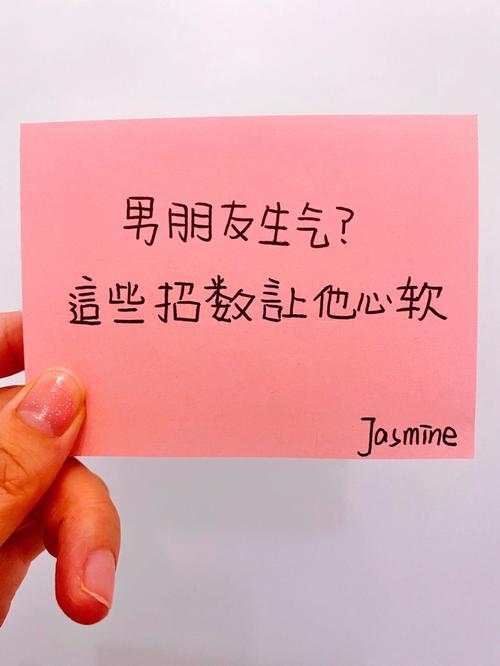 男朋友生气?
這些招数讓他心软
Jasmine